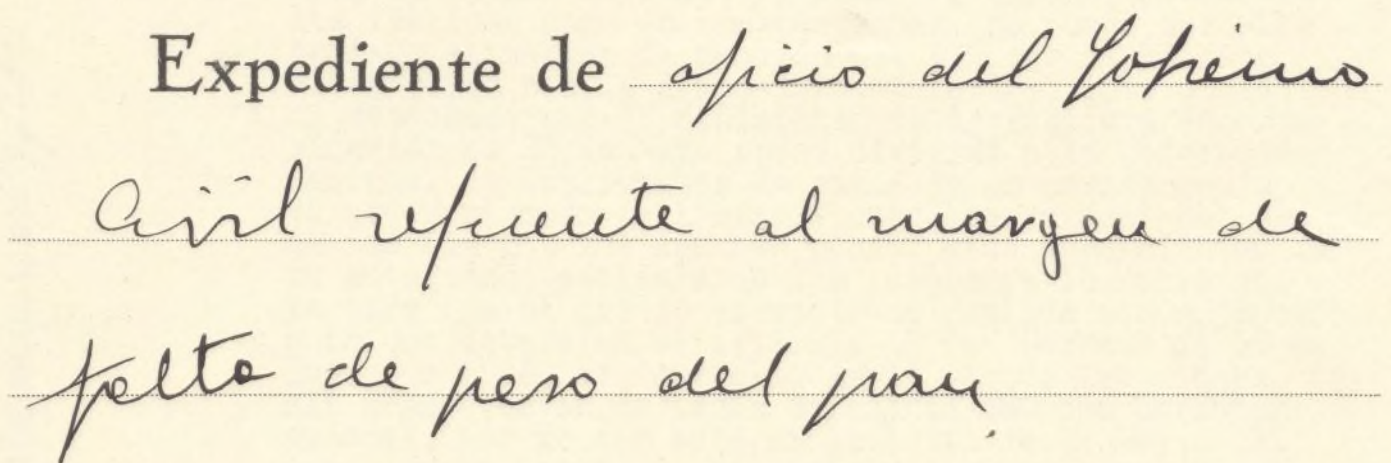 Expediente de oficio del Gobierno
Civil referente al margen de
falta de peso del pan.